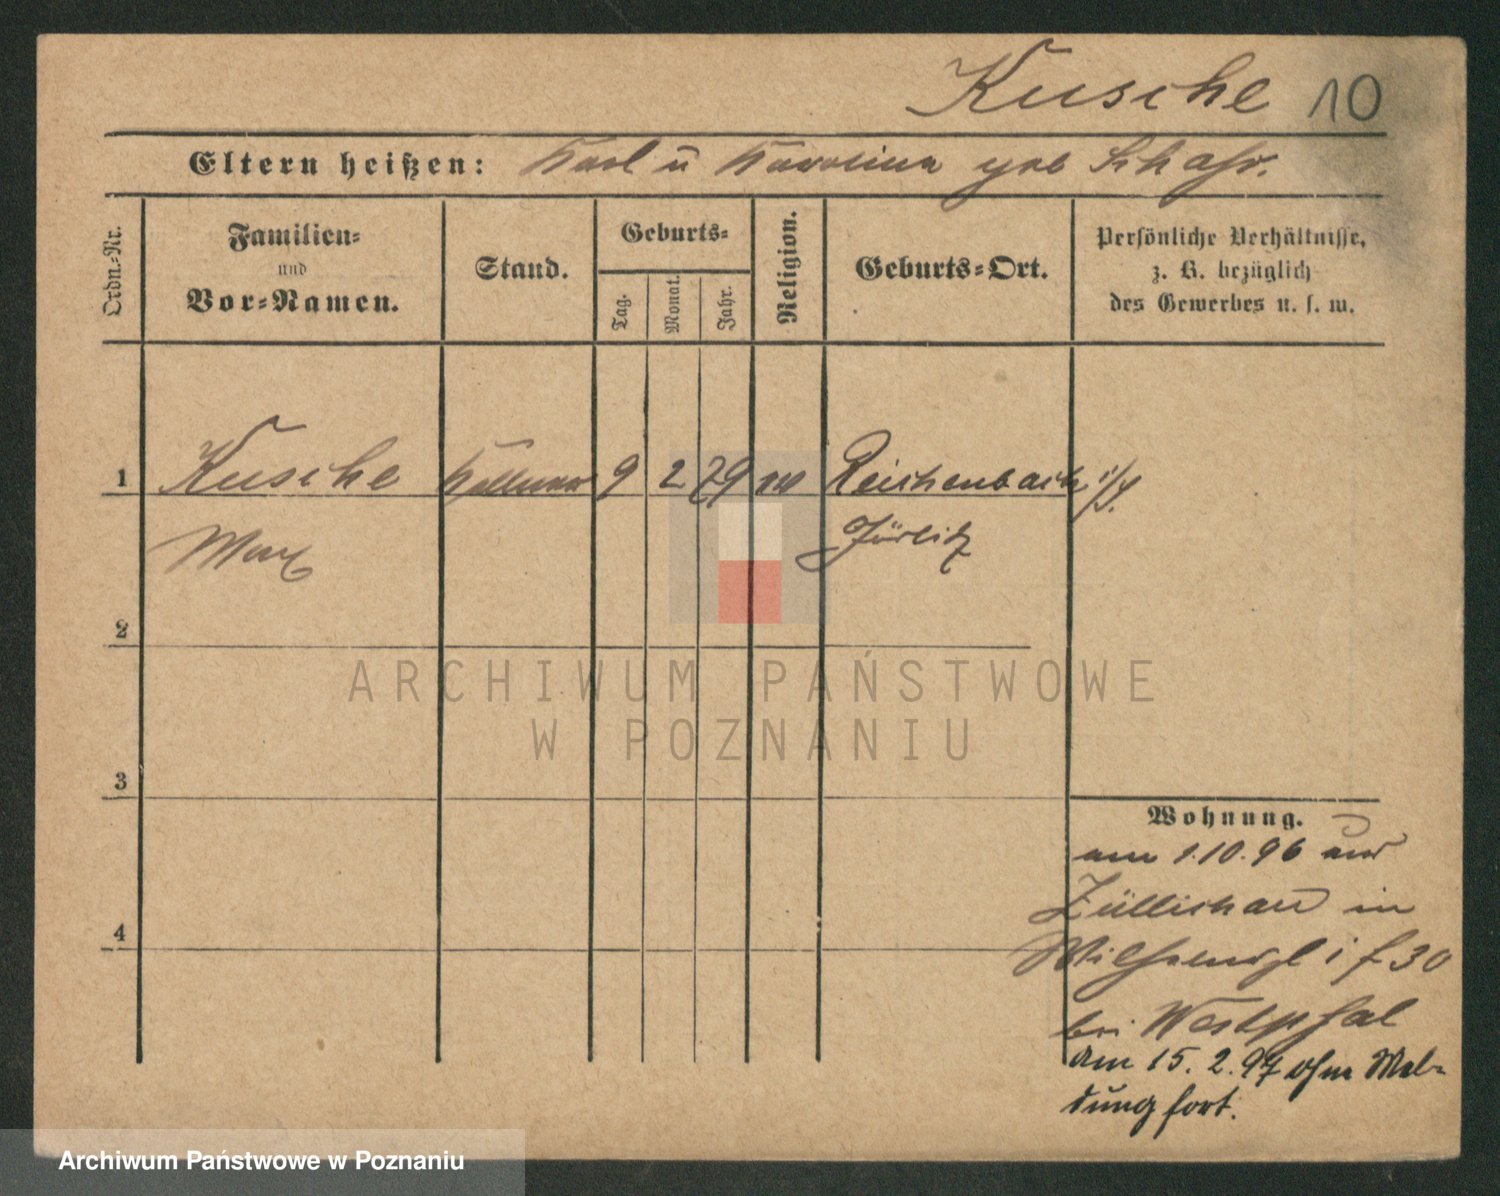 Kusche 10
Eltern heißen: Karl u Karolina geb Schafr.
Ordn.-Nr.
Familien-
und
Vor-Namen.
Stand.
Geburts-
Tag.
Monat.
Jahr.
Religion.
Geburts-Ort.
Persönliche Verhältnisse,
z. B. bezüglich
des Gewerbes u. s. w.
1 Kusche Kellner 9 2 79 Reichenbach i/S.
Max Görlitz
2
ARCHIWUM PAŃSTWOWE
W POZNANIU
3
Wohnung.
am 1.10.96 aus
Züllichau in
30
bei Westphal
am 15.2.97 ohne Mel-
dung fort.
4
Archiwum Państwowe w Poznaniu